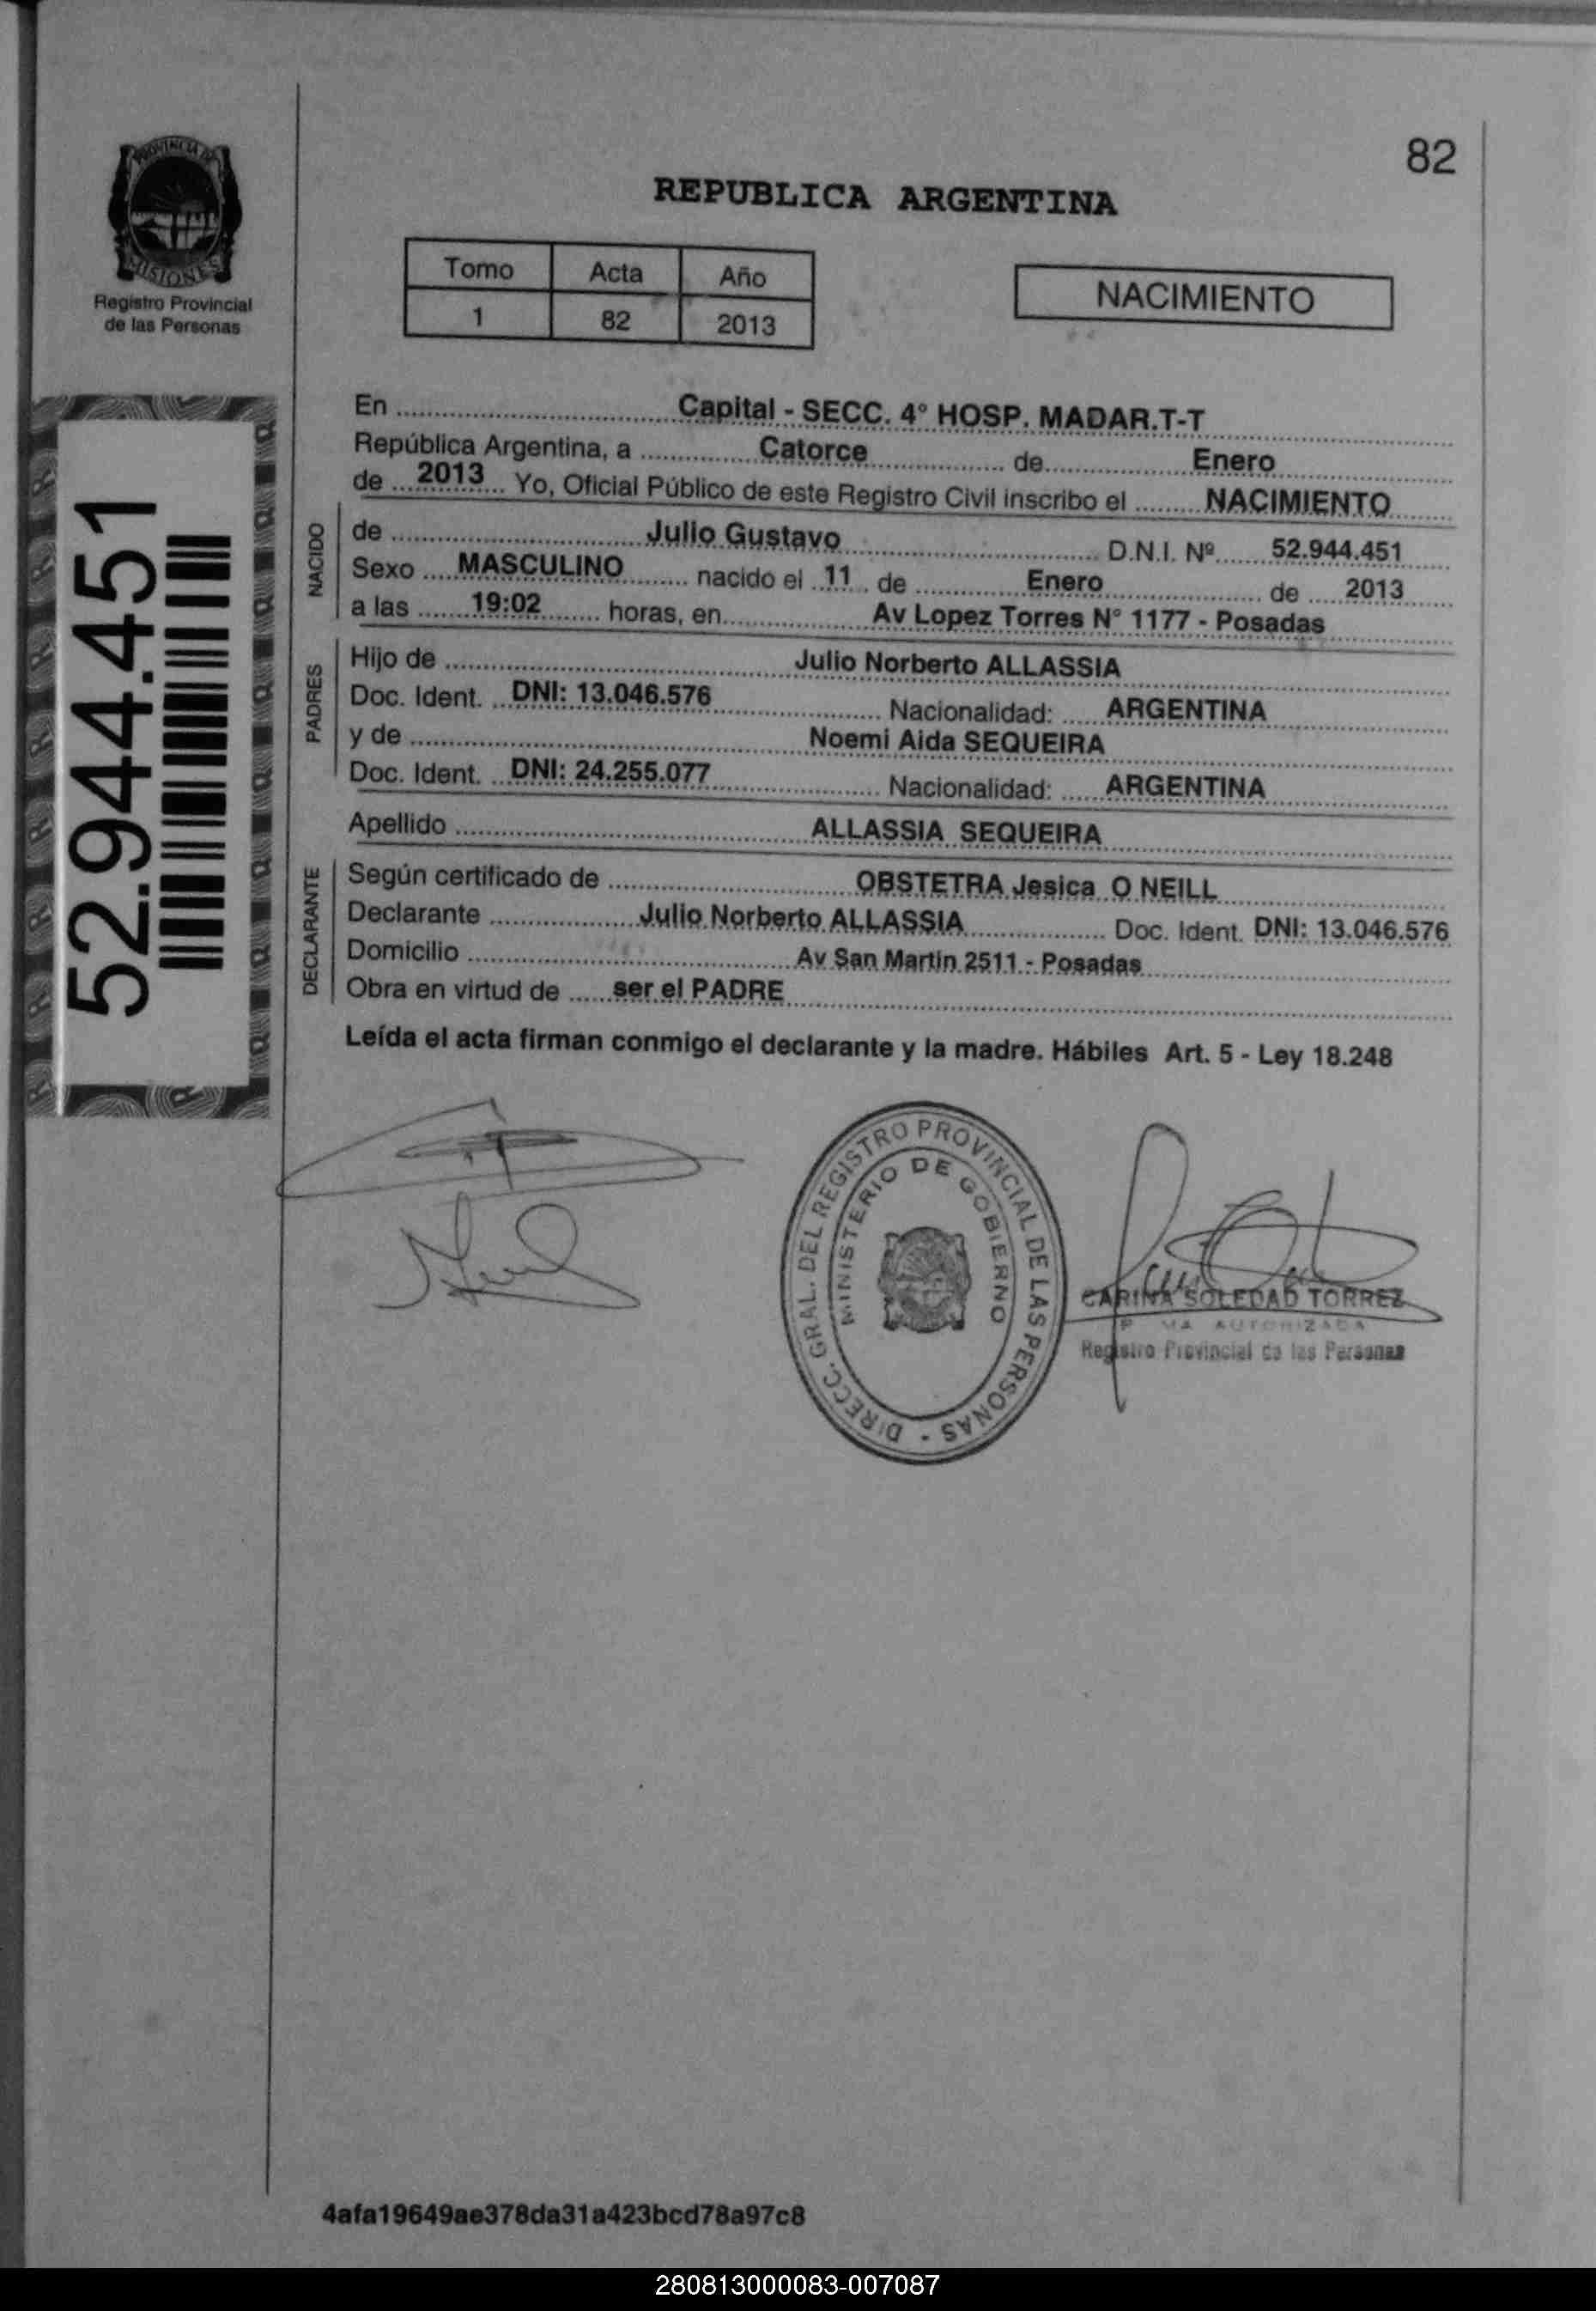 82
PROVINCIA DE
MISIONES
Registro Provincial
de las Personas
REPUBLICA ARGENTINA
Tomo Acta Año
1 82 2013
NACIMIENTO
52.944.451
En Capital - SECC. 4° HOSP. MADAR.T-T
República Argentina, a Catorce de Enero
de 2013 Yo, Oficial Público de este Registro Civil inscribo el NACIMIENTO
NACIDO
de Julio Gustavo D.N.I. Nº 52.944.451
Sexo MASCULINO nacido el 11 de Enero de 2013
a las 19:02 horas, en Av Lopez Torres N° 1177 - Posadas
PADRES
Hijo de Julio Norberto ALLASSIA
Doc. Ident. DNI: 13.046.576 Nacionalidad: ARGENTINA
y de Noemi Aida SEQUEIRA
Doc. Ident. DNI: 24.255.077 Nacionalidad: ARGENTINA
Apellido ALLASSIA SEQUEIRA
DECLARANTE
Según certificado de OBSTETRA Jesica O NEILL
Declarante Julio Norberto ALLASSIA Doc. Ident. DNI: 13.046.576
Domicilio Av San Martin 2511 - Posadas
Obra en virtud de ser el PADRE
Leída el acta firman conmigo el declarante y la madre. Hábiles Art. 5 - Ley 18.248
DIRECC. GRAL. DEL REGISTRO PROVINCIAL DE LAS PERSONAS -
MINISTERIO DE GOBIERNO
CARINA SOLEDAD TORREZ
AUTORIZADA
Registro Provincial de las Personas
4afa19649ae378da31a423bcd78a97c8
280813000083-007087